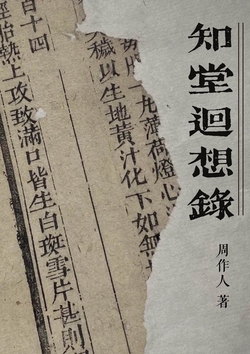 知堂迴想錄
周作人 著
九薄荷燈心
穢以生地黃汁化下如無
胎熱上攻致滿口皆生白斑雪片甚則
百十四